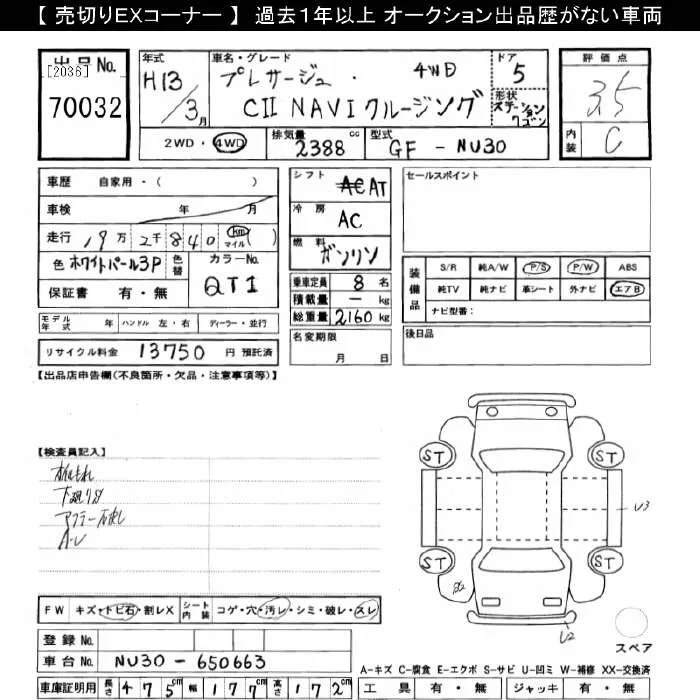 【 売切りEXコーナー 】 過去1年以上 オークション出品歴がない車両
出品No.
[2036]
70032
年式
H13
3月
車名・グレード
プレサージュ・
4WD
CⅡ NAVI クルージング
ドア
5
形状
ステーション
ワゴン
2WD・4WD
排気量
2388 cc
型式
GF - NU30
評価点
3.5
内装
C
車歴 自家用・( )
車検 年 月
走行 19万 2千 840 km マイル ( )
色 ホワイトパール3P 色替
カラーNo.
QT1
保証書 有・無
シフト AT
冷房 AC
燃料 ガソリン
乗車定員 8 名
積載量 — kg
総重量 2160 kg
セールスポイント
装備品
S/R 純A/W P/S P/W ABS
純TV 純ナビ 革シート 外ナビ エアB
ナビ型番:
モデル年式 年 ハンドル 左・右 ディーラー・並行
リサイクル料金 13750 円 預託済
名変期限
月 日
後日品
【出品店申告欄(不良箇所・欠品・注意事項等)】
【検査員記入】
下廻りサ
A-U
ST
ST
ST
ST
U3
U2
FW キズ・トビ石・割レX
シート内装 コゲ・穴・汚レ・シミ・破レ・スレ
スペア
登録 No.
車台 No. NU30-650663
A-キズ C-腐食 E-エクボ S-サビ U-凹ミ W-補修 XX-交換済
車庫証明用 長さ 475cm 幅 177cm 高さ 172cm
工具 有・無 ジャッキ 有・無